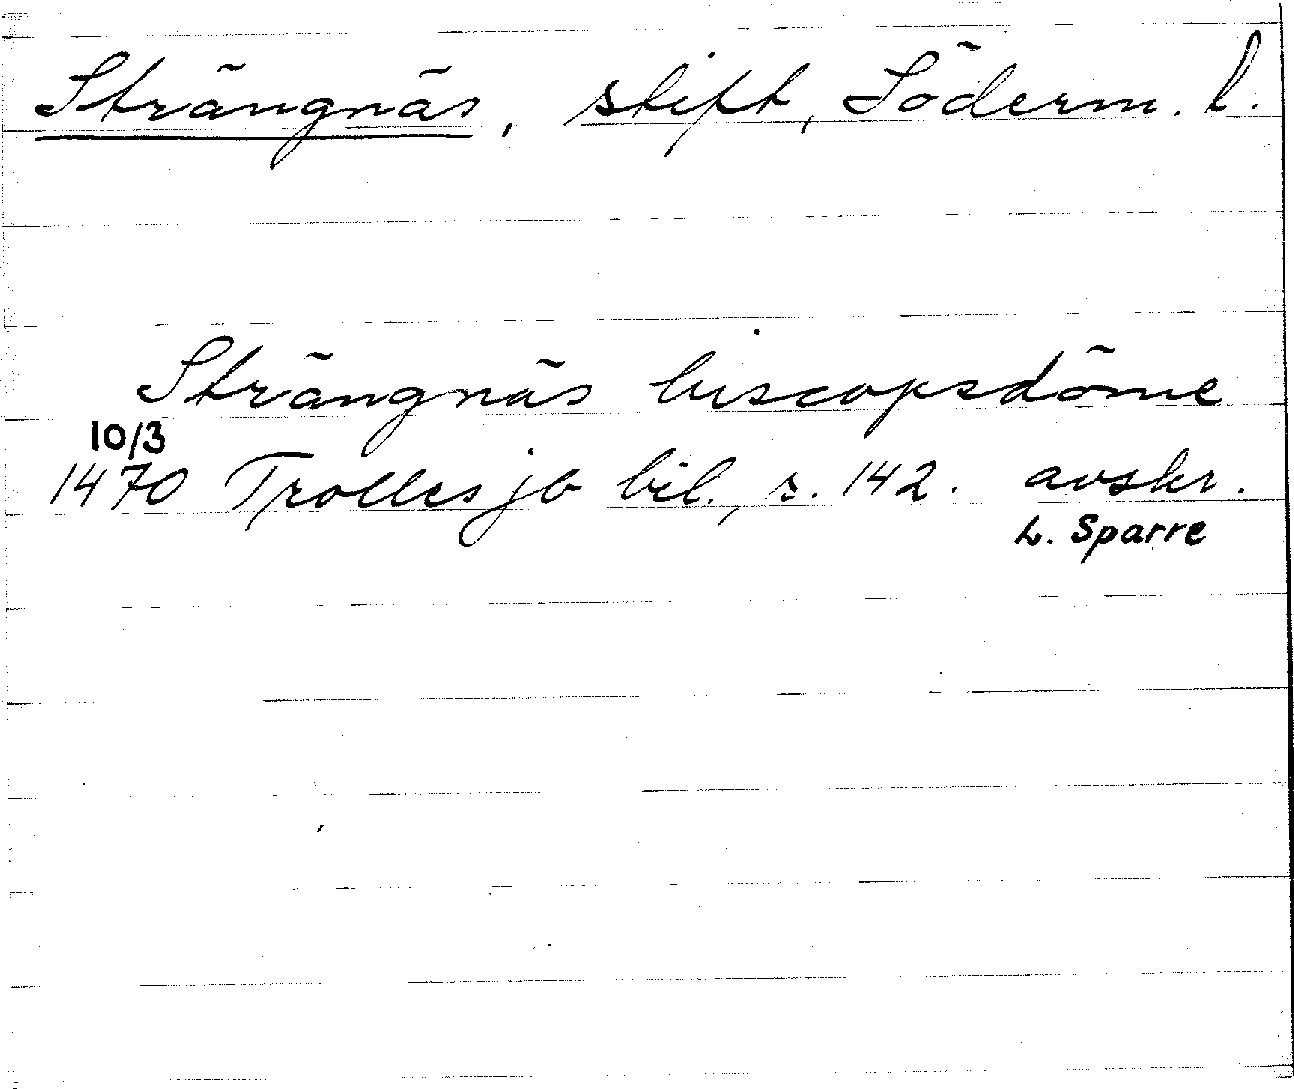 Strängnäs, stift, Söderm. l.
Strängnäs biscopsdöme
10/3
1470 Trolles jb bil., s. 142. avskr.
L. Sparre